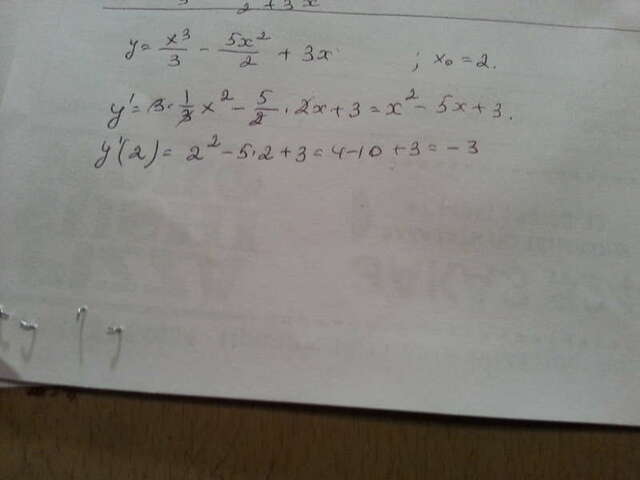 2 + 3x
y = x³/3 - 5x²/2 + 3x ; x₀ = 2.
y' = 3 · 1/3 x² - 5/2 · 2x + 3 = x² - 5x + 3.
y'(2) = 2² - 5 · 2 + 3 = 4 - 10 + 3 = - 3